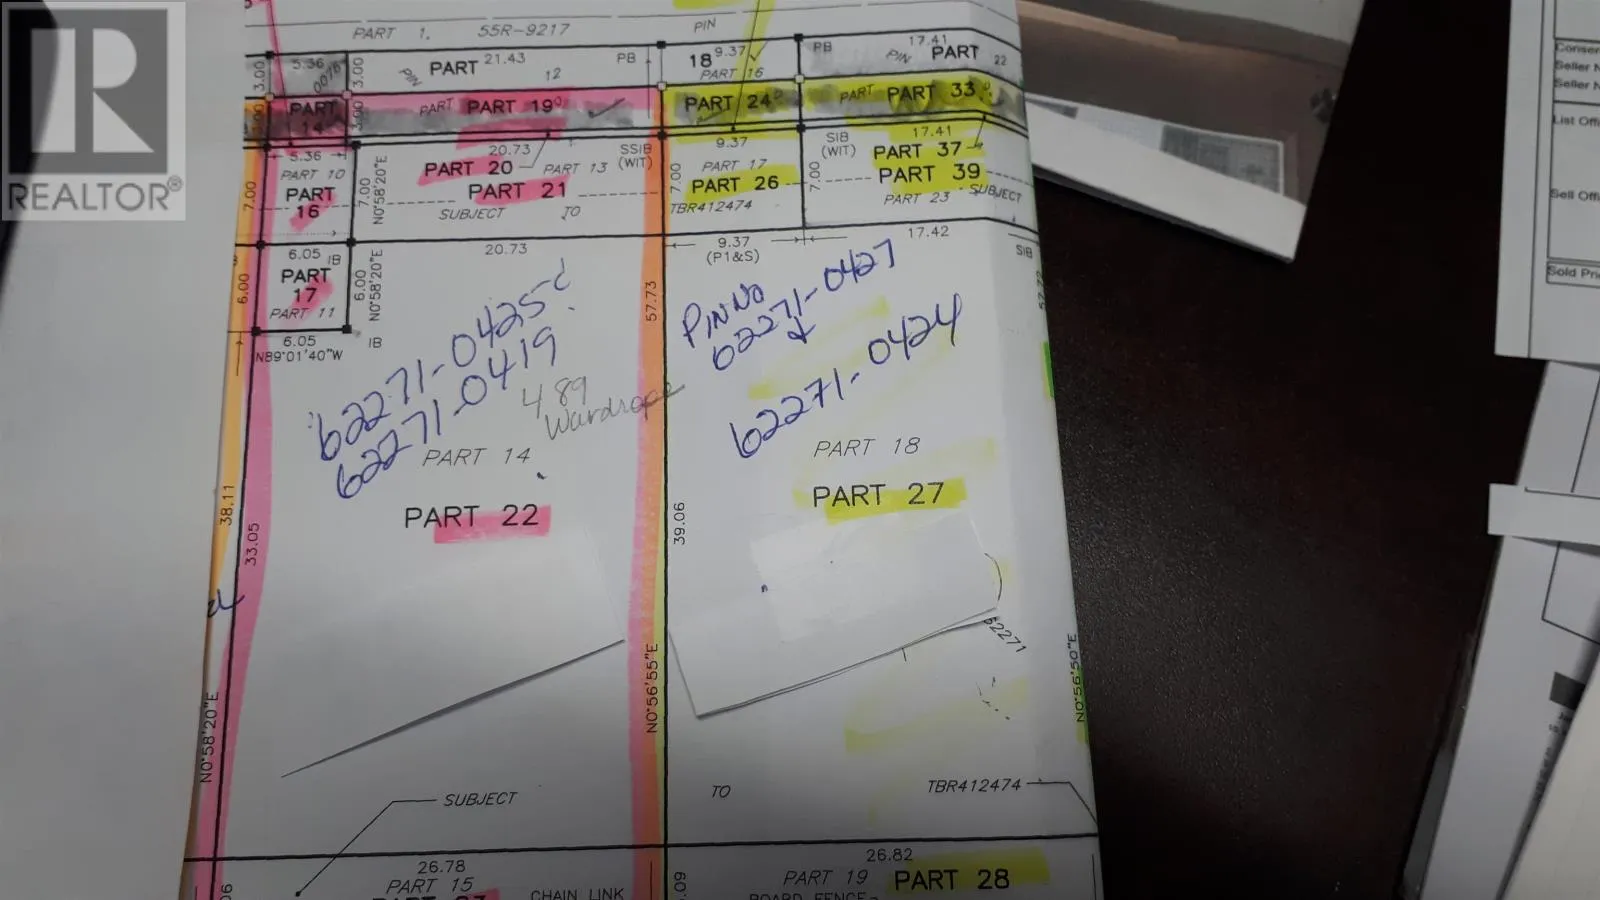 REALTOR®
PART 1, 55R-9217
PIN
5.36
3.00
3.00
PIN
PART 21.43
12
PB
18 9.37
PART 16
PB
17.41
PIN PART 22
3.00
PART
14
3.00
PART PART 19
PART 24
PART PART 33
5.36
PART 10
PART
16
7.00
7.00
N0°58'20"E
20.73
PART 20
PART 13
PART 21
SUBJECT TO
SSIB
(WIT)
9.37
PART 17
7.00
PART 26
TBR412474
SIB
(WIT)
7.00
17.41
PART 37
PART 39
PART 23
SUBJECT
6.05 IB
PART
17
PART 11
6.00
6.00
N0°58'20"E
6.05
IB
N89°01'40"W
20.73
9.37
(P1&S)
17.42
SIB
57.73
62271-0425
62271-0419
489
Wardrope
PIN No
62271-0427
&
62271-0424
PART 14
PART 22
PART 18
PART 27
38.11
33.05
39.06
62271
N0°58'20"E
N0°56'55"E
N0°56'50"E
SUBJECT
TO
TBR412474
26.78
PART 15
CHAIN LINK
26.82
PART 19 PART 28
BOARD FENCE
.09
Seller N
Seller N
List Offi
Sell Offi
Sold Pri